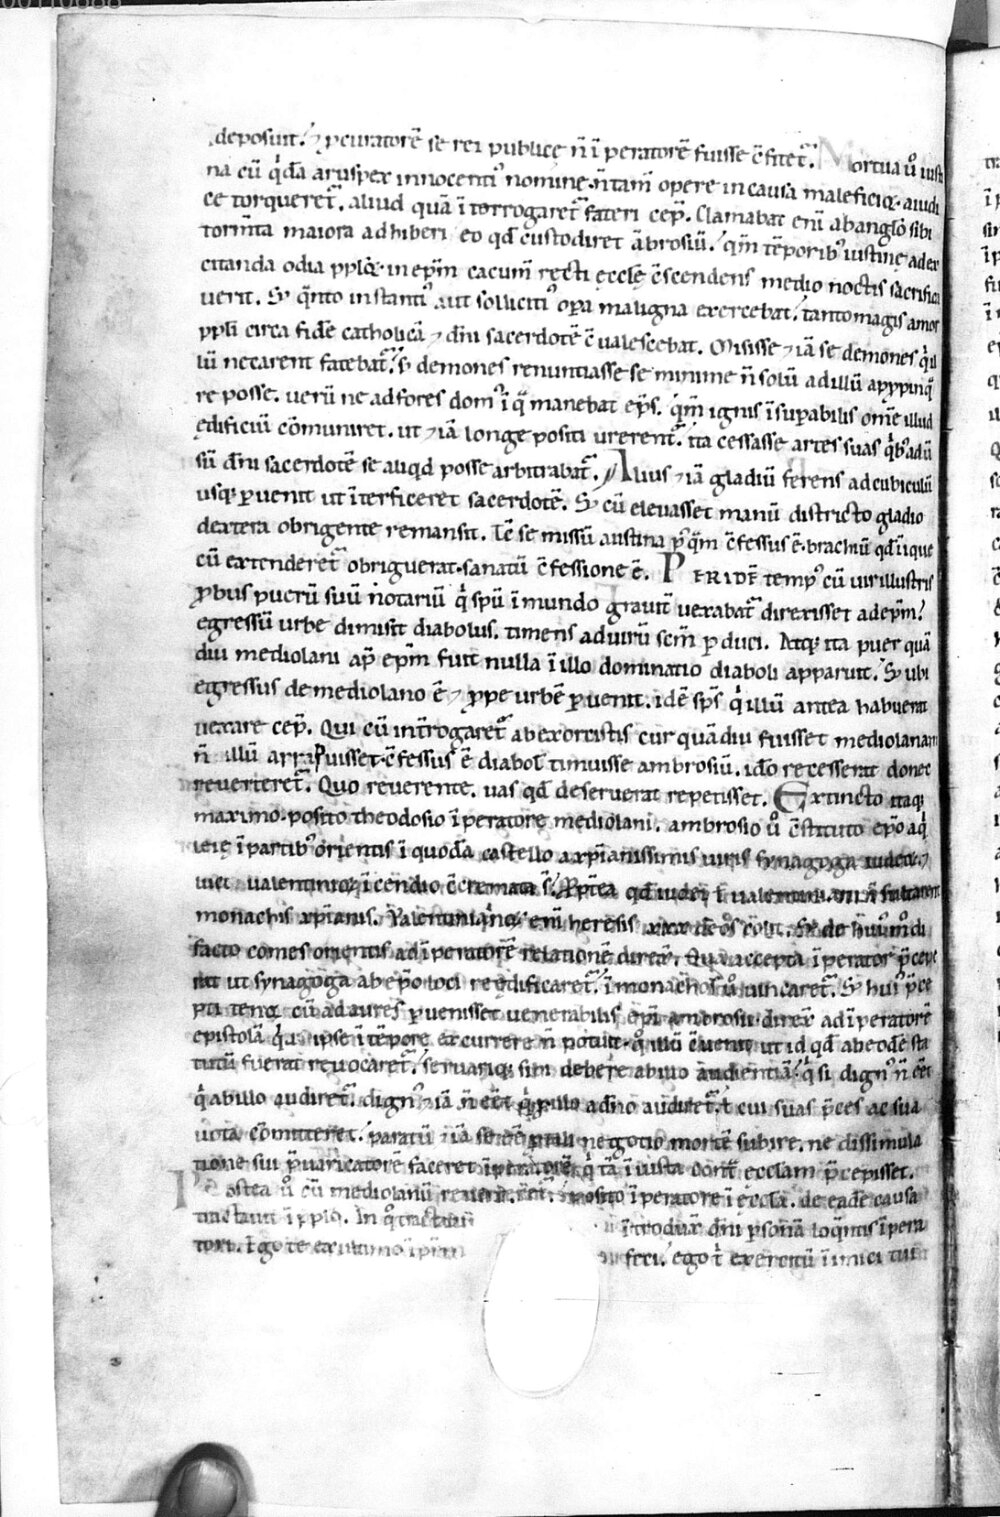 deposuit. ⁊ ꝓcuratorē se rei publicę n̄ īperatorē fuisse ꝯfitet᷑. Mortua ū iusti
na cū qͥdā aruspex innocentiꝰ nomine. n̄ tam̄ opere in causa maleficioꝝ. a iudi
ce torqueret᷑. aliud quā īterrogaret᷑ fateri cep̄. Clamabat enī ab anglo sibi
torm̄ta maiora adhiberi eo qd̄ custodiret ābrosiū. qm̄ tēporibꝰ iustinę ad ex
citanda odia pplōꝝ in ep̄m cacumē tecti ęcclę ꝯscendens medio noctis sacrifica
uerit. Sꝫ qn̄to instantiꝰ aut sollicitiꝰ oꝑa maligna exercebat. tanto magis amor
ppli circa fidē catholicā ⁊ dn̄i sacerdotē ꝯualescebat. Misisse ⁊iā se demones qͥ il
lū necarent fatebat᷑. sꝫ demones renuntiasse se minime n̄ solū ad illū appropinqͣ
re posse. uerū ne ad fores domꝰ ī qͣ manebat ep̄s. qm̄ ignis īsuꝑabilis om̄e illud
ędificiū cōmuniret. ut ⁊iā longe positi urerent᷑. ita cessasse artes suas qͥbꝰ adū
sū dn̄i sacerdotē se aliqd posse arbitrabat᷑. Alius ⁊iā gladiū ferens ad cubiculū
usqꝫ ꝑuenit ut īterficeret sacerdotē. Sꝫ cū eleuasset manū districto gladio
dextera obrigente remansit. Ic̄ se missū a iustina pꝰqm̄ ꝯfessus ē. brachiū qd̄ inique
cū extenderet᷑ obriguerat. sanatū ꝯfessione ē. Per idē tempꝰ cū uir illustris
ꝓbus puerū suū notariū qͥ spū īmundo grauit᷑ uexabat᷑ direxisset ad ep̄m.
egressū urbe dimisit diabolus. timens ad uirū sc̄m ꝑduci. Atqꝫ ita puer quā
diu mediolani apͩ ep̄m fuit nulla ī illo dominatio diaboli apparuit. Sꝫ ubi
egressus de mediolano ē ⁊ ꝓpe urbē ꝑuenit. idē sp̄s qͥ illū antea habuerat
uexare cep̄. Qui cū int᷑rogaret᷑ ab exorcistis cur quādiu fuisset mediolanum
n̄ illū arripuisset. ꝯfessus ē diabol᷑ timuisse ambrosiū. ido recesserat donec
reuerteret᷑. Quo reuerente. uas qd̄ deseruerat repetisset. Extincto itaqꝫ
maximo. posito theodosio īperatore mediolani. ambrosio ū ꝯstituto epō aqͥ
leię ī partibꝰ orientis ī quodā castello a xp̄ianissimis uiris synagoga iudeoꝝ ⁊
luci ualentinioꝝ īcendio ꝯcremata s̄. Ꝓpt̄ea qd̄ iudei ł ualentiniani īsultarent
monachis xp̄ianis. Valentinianoꝝ enī heresis
facto comes orientis ad īperatorē relationē direx. Qua accepta īperator p̄cepe
rat ut synagoga ab epō loci reędificaret᷑. ī monachos ū uindicaret᷑. Sꝫ huiꝰ p̄ce
pti tenor cū ad aures ꝑuenisset uenerabilis ep̄i ambrosii. direx̄ ad īperatorē
epistolā qͥa ipse ī tēpore excurrere n̄ potuit. qͦ illū ꝯuenit ut id qd̄ ab eodē sta
tutū fuerat reuocaret᷑. seruariqꝫ sibi debere ab illo audientiā. qͥ si dignꝰ n̄ eēt
qͥ ab illo audiret᷑. dignꝰ ⁊iā n̄ eēt qͥ ꝓ illo a dn̄o audiret᷑. ł cui suas p̄ces ac sua
uota cōmitteret. paratū ⁊iā se eē ꝓ tali negotio mortē subire. ne dissimula
tione sui p̄uaricatorē faceret īperatorē. qͥ tā īiusta contͣ ecclam p̄cepisset.
Postea ū cū mediolanū reuersus. posito īperatore ī eccła. de eadē causa
tractauit ī pplo. In qͦ tractatu introdux dn̄i ꝑsonā loqn̄tis īpera
tori. Ego te ex ultimo īperatorem feci. ego tͥ exercitū īimici tui